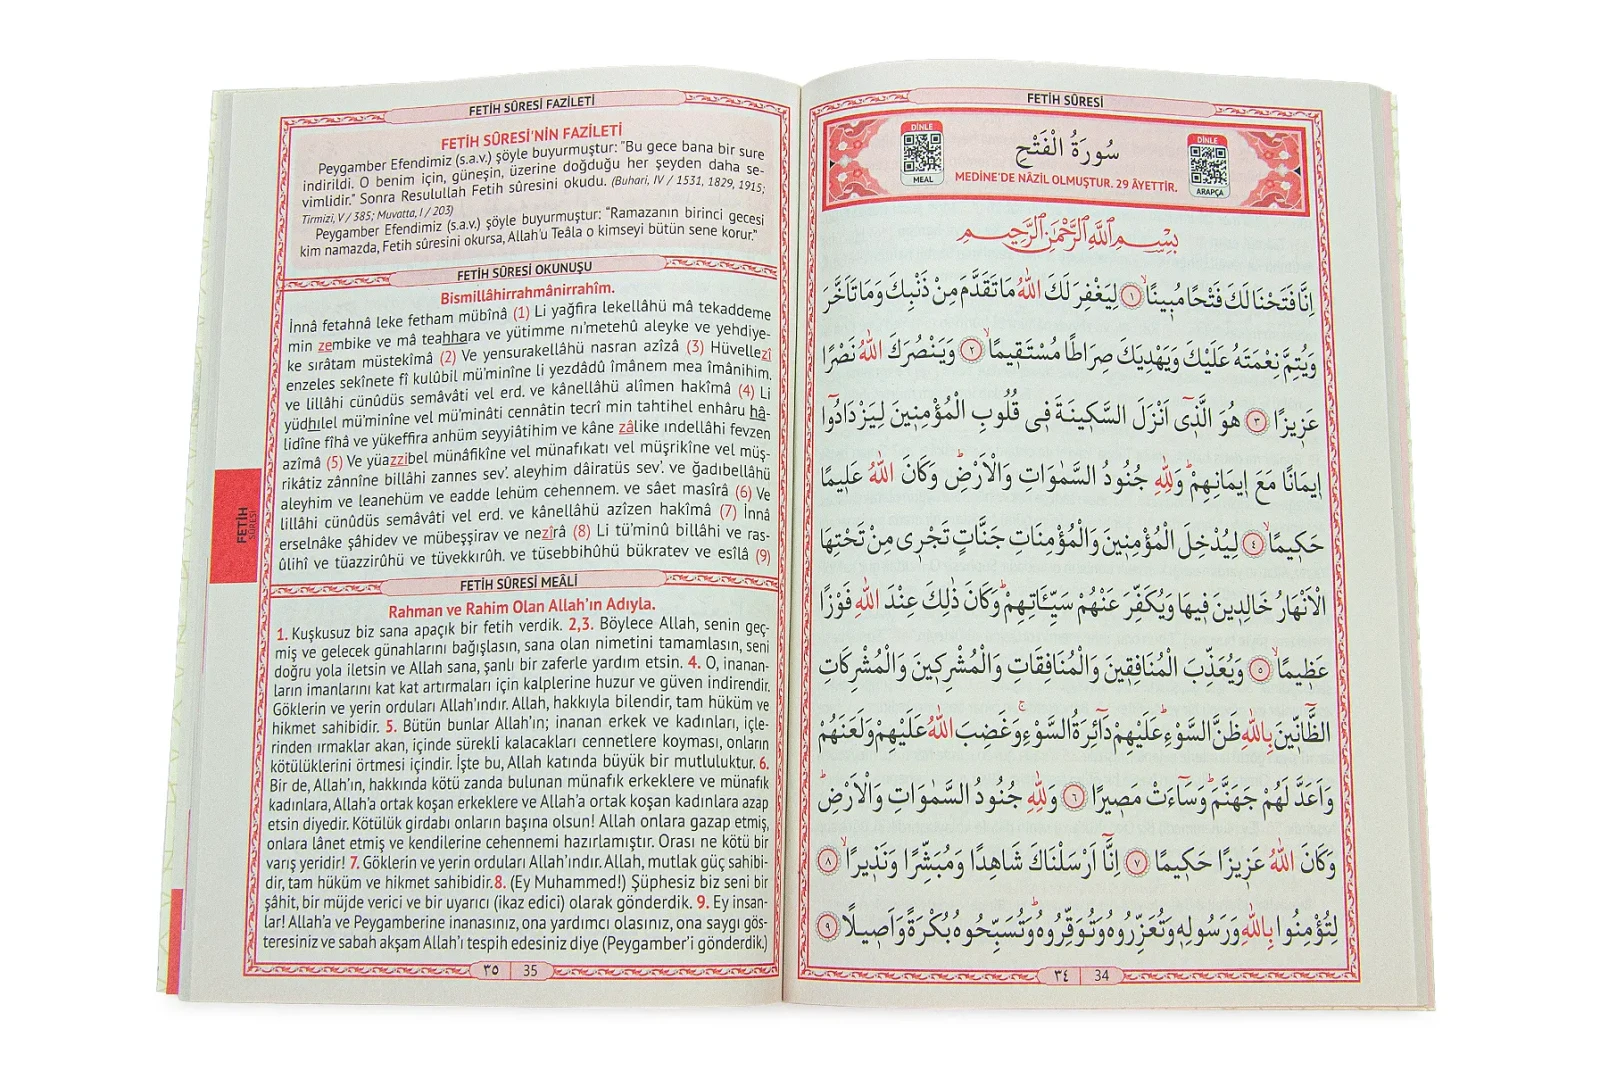 FETİH SÛRESİ
DİNLE
MEAL
سُورَةُ الْفَتْحِ
MEDİNE'DE NÂZİL OLMUŞTUR. 29 ÂYETTİR.
DİNLE
ARAPÇA
بِسْمِ اللّٰهِ الرَّحْمٰنِ الرَّحِيمِ
اِنَّا فَتَحْنَا لَكَ فَتْحًا مُبِينًاۙ ﴿١﴾ لِيَغْفِرَ لَكَ اللّٰهُ مَا تَقَدَّمَ مِنْ ذَنْبِكَ وَمَا تَاَخَّرَ
وَيُتِمَّ نِعْمَتَهُ عَلَيْكَ وَيَهْدِيَكَ صِرَاطًا مُسْتَقِيمًاۙ ﴿٢﴾ وَيَنْصُرَكَ اللّٰهُ نَصْرًا
عَزِيزًا ﴿٣﴾ هُوَ الَّذِٓي اَنْزَلَ السَّكِينَةَ فِي قُلُوبِ الْمُؤْمِنِينَ لِيَزْدَادُٓوا
اِيمَانًا مَعَ اِيمَانِهِمْۜ وَلِلّٰهِ جُنُودُ السَّمٰوَاتِ وَالْاَرْضِۜ وَكَانَ اللّٰهُ عَلِيمًا
حَكِيمًاۙ ﴿٤﴾ لِيُدْخِلَ الْمُؤْمِنِينَ وَالْمُؤْمِنَاتِ جَنَّاتٍ تَجْرِي مِنْ تَحْتِهَا
الْاَنْهَارُ خَالِدِينَ فِيهَا وَيُكَفِّرَ عَنْهُمْ سَيِّـَٔاتِهِمْۜ وَكَانَ ذٰلِكَ عِنْدَ اللّٰهِ فَوْزًا
عَظِيمًاۙ ﴿٥﴾ وَيُعَذِّبَ الْمُنَافِقِينَ وَالْمُنَافِقَاتِ وَالْمُشْرِكِينَ وَالْمُشْرِكَاتِ
الظَّٓانِّينَ بِاللّٰهِ ظَنَّ السَّوْءِۜ عَلَيْهِمْ دَٓائِرَةُ السَّوْءِۚ وَغَضِبَ اللّٰهُ عَلَيْهِمْ وَلَعَنَهُمْ
وَاَعَدَّ لَهُمْ جَهَنَّمَۜ وَسَٓاءَتْ مَصِيرًا ﴿٦﴾ وَلِلّٰهِ جُنُودُ السَّمٰوَاتِ وَالْاَرْضِۜ
وَكَانَ اللّٰهُ عَزِيزًا حَكِيمًا ﴿٧﴾ اِنَّٓا اَرْسَلْنَاكَ شَاهِدًا وَمُبَشِّرًا وَنَذِيرًاۙ ﴿٨﴾
لِتُؤْمِنُوا بِاللّٰهِ وَرَسُولِهِ وَتُعَزِّرُوهُ وَتُوَقِّرُوهُۜ وَتُسَبِّحُوهُ بُكْرَةً وَاَصِيلًا ﴿٩﴾
٣٤ 34
FETİH SÛRESİ FAZİLETİ
FETİH SÛRESİ'NİN FAZİLETİ
Peygamber Efendimiz (s.a.v.) şöyle buyurmuştur: "Bu gece bana bir sure
indirildi. O benim için, güneşin, üzerine doğduğu her şeyden daha se-
vimlidir." Sonra Resulullah Fetih sûresini okudu. (Buhari, IV / 1531, 1829, 1915;
Tirmizi, V / 385; Muvatta, I / 203)
Peygamber Efendimiz (s.a.v.) şöyle buyurmuştur: "Ramazanın birinci gecesi
kim namazda, Fetih sûresini okursa, Allah'u Teâla o kimseyi bütün sene korur."
FETİH SÛRESİ OKUNUŞU
Bismillâhirrahmânirrahîm.
İnnâ fetahnâ leke fetham mübînâ (1) Li yağfira lekellâhü mâ tekaddeme
min zembike ve mâ teahhara ve yütimme nı'metehû aleyke ve yehdiye-
ke sırâtam müstekîmâ (2) Ve yensurakellâhü nasran azîzâ (3) Hüvellezî
enzeles sekînete fî kulûbil mü'minîne li yezdâdû îmânem mea îmânihim,
ve lillâhi cünûdüs semâvâti vel erd. ve kânellâhü alîmen hakîmâ (4) Li
yüdhilel mü'minîne vel mü'minâti cennâtin tecrî min tahtihel enhâru hâ-
lidîne fîhâ ve yükeffira anhüm seyyiâtihim ve kâne zâlike ındellâhi fevzen
azîmâ (5) Ve yüazzibel münâfikîne vel münafıkatı vel müşrikîne vel müş-
rikâtiz zânnîne billâhi zannes sev'. aleyhim dâiratüs sev'. ve ğadıbellâhü
aleyhim ve leanehüm ve eadde lehüm cehennem. ve sâet masîrâ (6) Ve
lillâhi cünûdüs semâvâti vel erd. ve kânellâhü azîzen hakîmâ (7) İnnâ
erselnâke şâhidev ve mübeşşirav ve nezîrâ (8) Li tü'minû billâhi ve ras-
ûlihî ve tüazzirûhü ve tüvekkirûh. ve tüsebbihûhü bükratev ve esîlâ (9)
FETİH SÛRESİ
FETİH SÛRESİ MEÂLİ
Rahman ve Rahim Olan Allah'ın Adıyla.
1. Kuşkusuz biz sana apaçık bir fetih verdik. 2,3. Böylece Allah, senin geç-
miş ve gelecek günahlarını bağışlasın, sana olan nimetini tamamlasın, seni
doğru yola iletsin ve Allah sana, şanlı bir zaferle yardım etsin. 4. O, inanan-
ların imanlarını kat kat artırmaları için kalplerine huzur ve güven indirendir.
Göklerin ve yerin orduları Allah'ındır. Allah, hakkıyla bilendir, tam hüküm ve
hikmet sahibidir. 5. Bütün bunlar Allah'ın; inanan erkek ve kadınları, içle-
rinden ırmaklar akan, içinde sürekli kalacakları cennetlere koyması, onların
kötülüklerini örtmesi içindir. İşte bu, Allah katında büyük bir mutluluktur. 6.
Bir de, Allah'ın, hakkında kötü zanda bulunan münafık erkeklere ve münafık
kadınlara, Allah'a ortak koşan erkeklere ve Allah'a ortak koşan kadınlara azap
etsin diyedir. Kötülük girdabı onların başına olsun! Allah onlara gazap etmiş,
onlara lânet etmiş ve kendilerine cehennemi hazırlamıştır. Orası ne kötü bir
varış yeridir! 7. Göklerin ve yerin orduları Allah'ındır. Allah, mutlak güç sahibi-
dir, tam hüküm ve hikmet sahibidir. 8. (Ey Muhammed!) Şüphesiz biz seni bir
şâhit, bir müjde verici ve bir uyarıcı (ikaz edici) olarak gönderdik. 9. Ey insan-
lar! Allah'a ve Peygamberine inanasınız, ona yardımcı olasınız, ona saygı gös-
teresiniz ve sabah akşam Allah'ı tespih edesiniz diye (Peygamber'i gönderdik.)
٣٥ 35